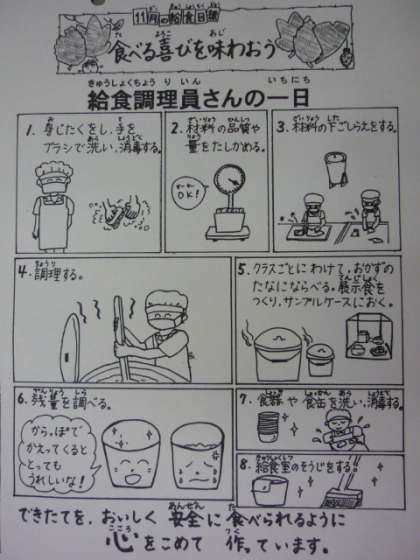 11月の給食目標
食べる喜びを味わおう
給食調理員さんの一日
1. 身じたくをし、手を
ブラシで洗い、消毒する。
2. 材料の品質や
量をたしかめる。
OK!
3. 材料の下ごしらえをする。
4. 調理する。
5. クラスごとにわけて、おかずの
たなにならべる。展示食を
つくり、サンプルケースにおく。
6. 残量を調べる。
からっぽで
かえってくると
とっても
うれしいな!
7. 食器や食缶を洗い、消毒する。
8. 給食室のそうじをする。
できたてを、おいしく安全に食べられるように
心をこめて作っています。